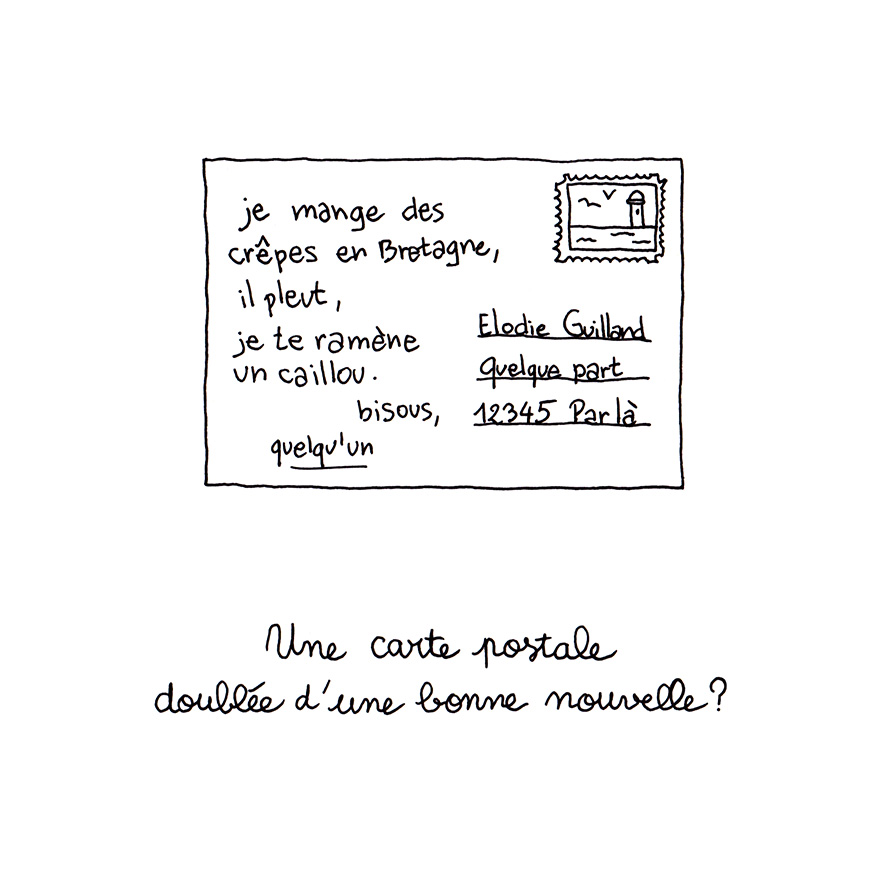 je mange des
crêpes en Bretagne,
il pleut,
je te ramène
un caillou.
bisous,
quelqu'un
Elodie Guilland
quelque part
12345 Par là
Une carte postale
doublée d'une bonne nouvelle?